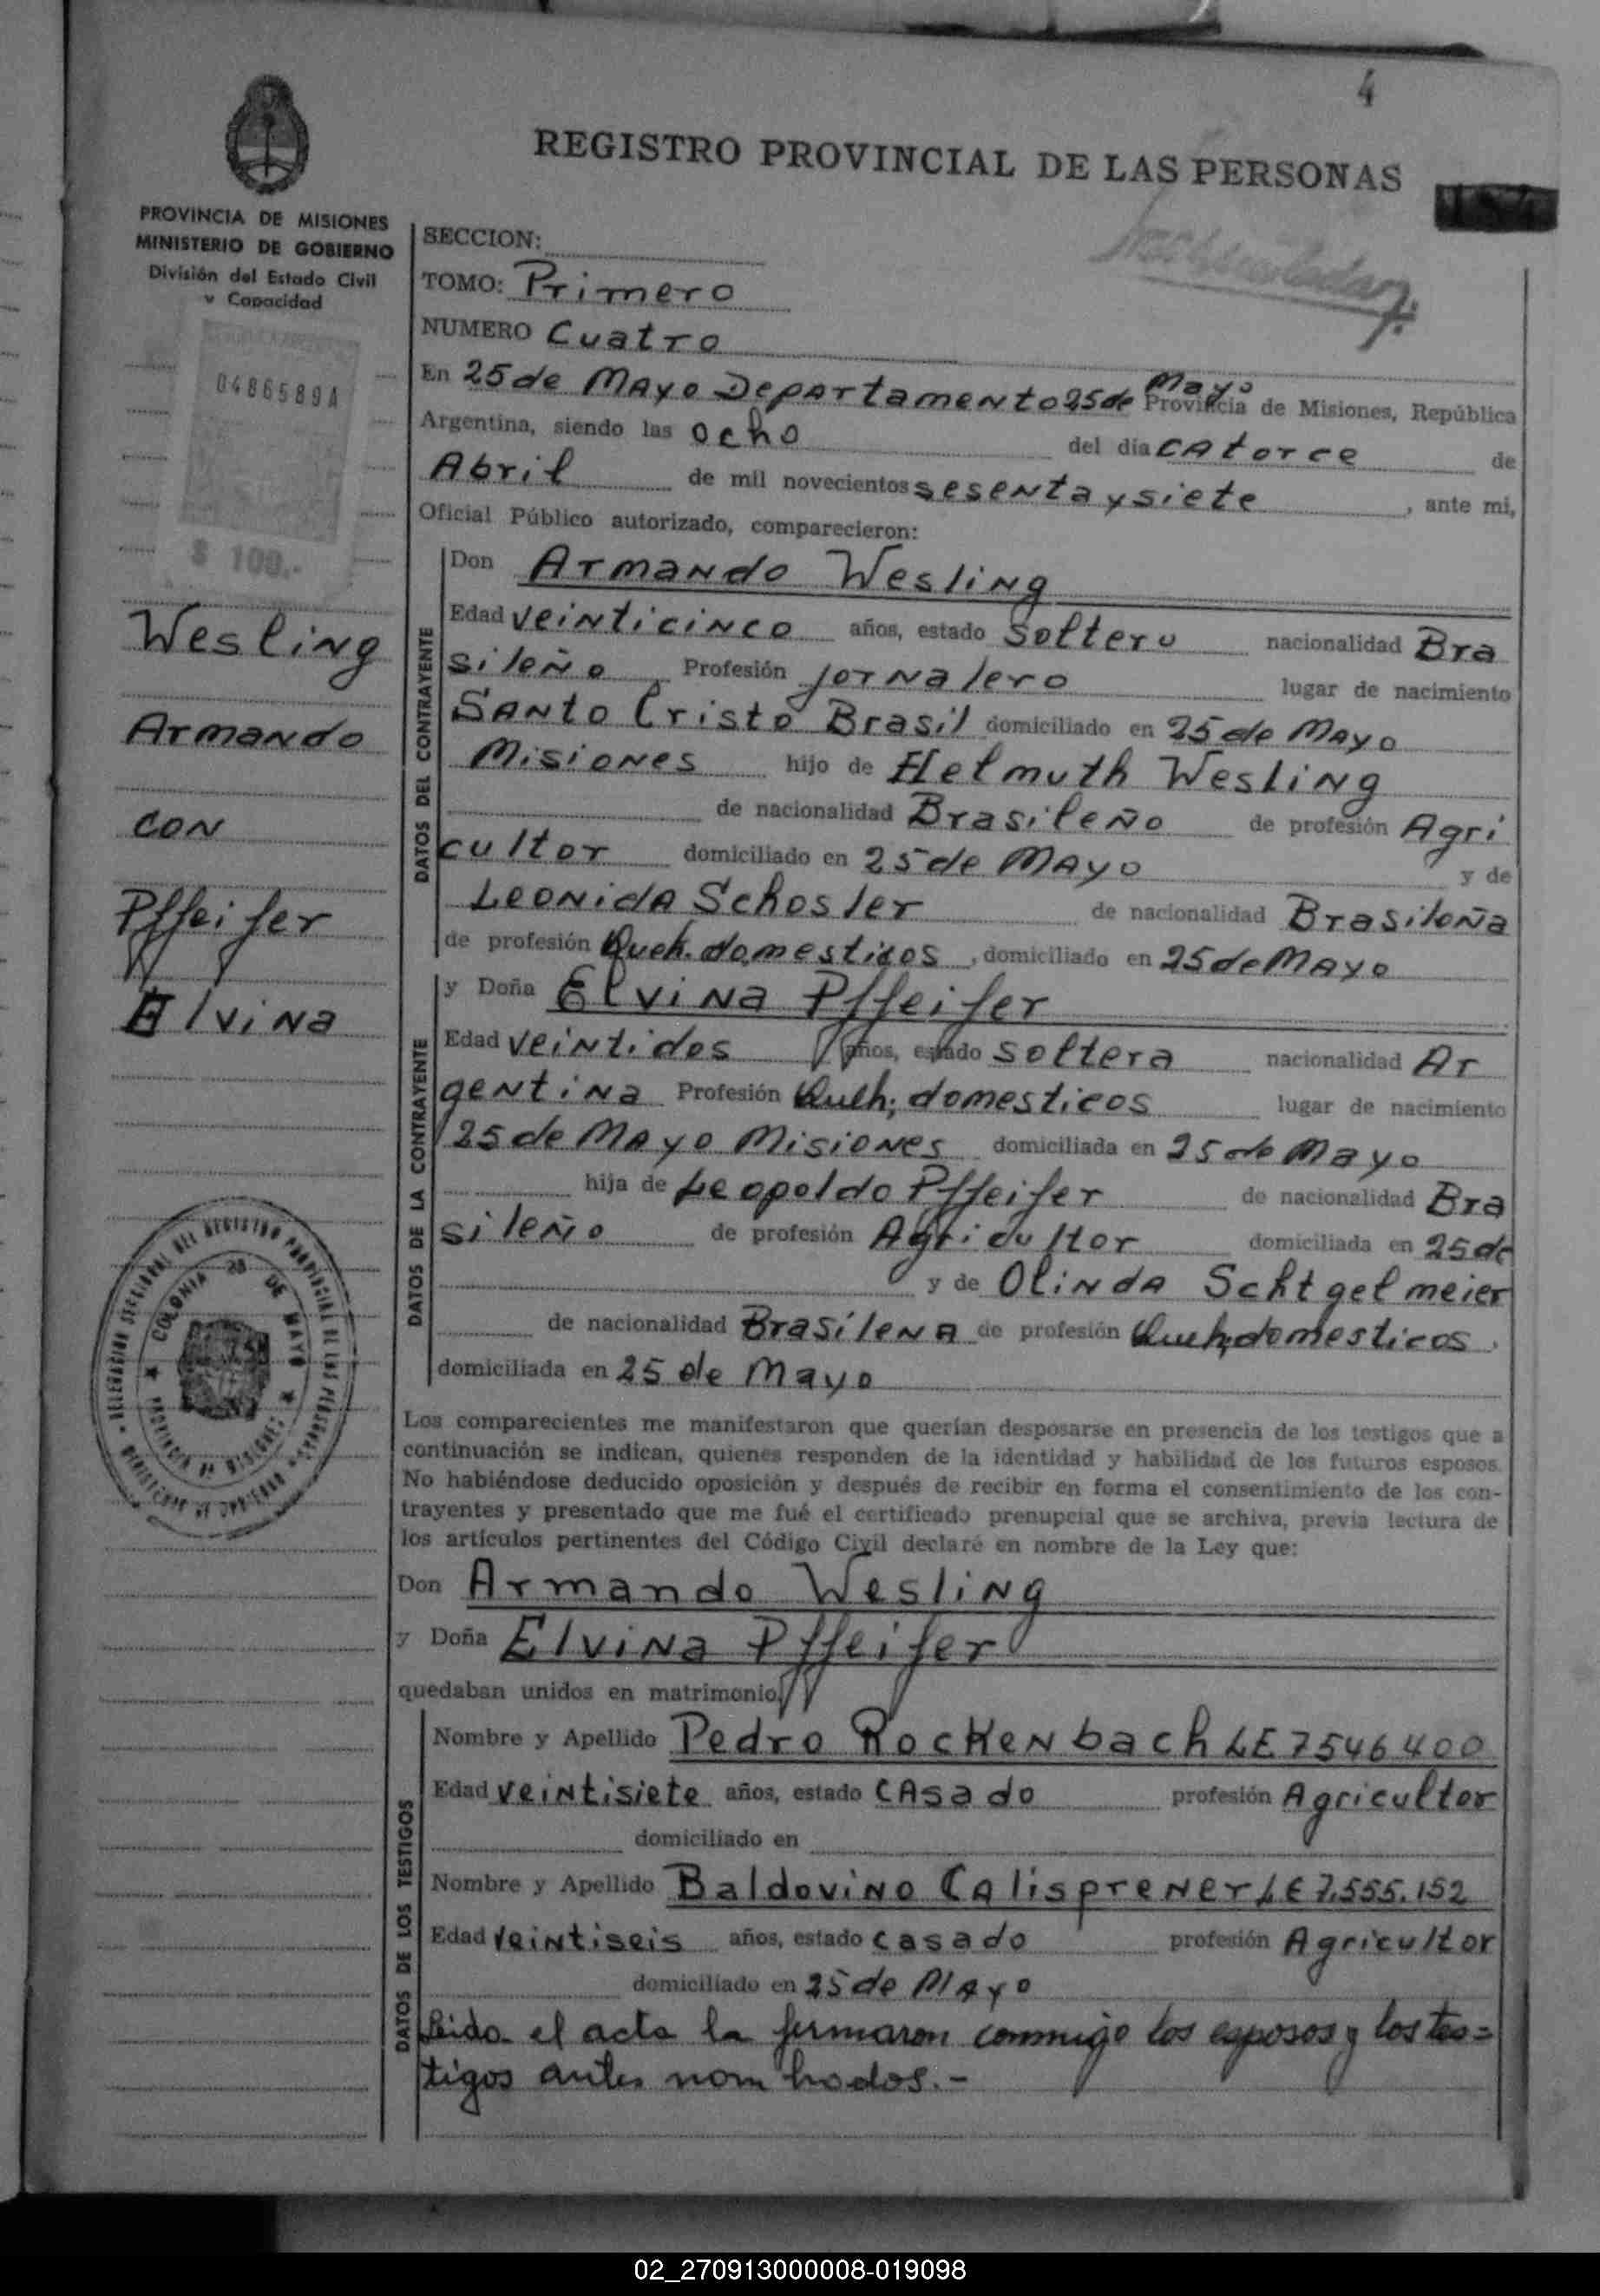 4
REGISTRO PROVINCIAL DE LAS PERSONAS
PROVINCIA DE MISIONES
MINISTERIO DE GOBIERNO
División del Estado Civil
y Capacidad
0486589A
$ 100.-
Wesling
Armando
con
Pffeifer
Elvina
COLONIA 25 DE MAYO
PROVINCIA DE MISIONES
SECCION:
TOMO: Primero
NUMERO Cuatro
En 25 de Mayo Departamento 25 de Mayo Provincia de Misiones, República
Argentina, siendo las ocho del día catorce de
Abril de mil novecientos sesenta y siete, ante mi,
Oficial Público autorizado, comparecieron:
DATOS DEL CONTRAYENTE
Don Armando Wesling
Edad veinticinco años, estado soltero nacionalidad Bra
sileño Profesión jornalero lugar de nacimiento
Santo Cristo Brasil domiciliado en 25 de Mayo
Misiones hijo de Helmuth Wesling
de nacionalidad Brasileño de profesión Agri
cultor domiciliado en 25 de Mayo y de
Leonida Schosler de nacionalidad Brasileña
de profesión Queh. domesticos, domiciliado en 25 de Mayo
DATOS DE LA CONTRAYENTE
y Doña Elvina Pffeifer
Edad veintidos años, estado soltera nacionalidad Ar
gentina Profesión Queh; domesticos lugar de nacimiento
25 de Mayo Misiones domiciliada en 25 de Mayo
hija de Leopoldo Pffeifer de nacionalidad Bra
sileño de profesión Agricultor domiciliada en 25 de
y de Olinda Schtgelmeier
de nacionalidad Brasilena de profesión Queh; domesticos.
domiciliada en 25 de Mayo
Los comparecientes me manifestaron que querían desposarse en presencia de los testigos que a
continuación se indican, quienes responden de la identidad y habilidad de los futuros esposos.
No habiéndose deducido oposición y después de recibir en forma el consentimiento de los con-
trayentes y presentado que me fué el certificado prenupcial que se archiva, previa lectura de
los artículos pertinentes del Código Civil declaré en nombre de la Ley que:
Don Armando Wesling
y Doña Elvina Pffeifer
quedaban unidos en matrimonio.
DATOS DE LOS TESTIGOS
Nombre y Apellido Pedro Rockenbach LE 7546400
Edad veintisiete años, estado casado profesión Agricultor
domiciliado en
Nombre y Apellido Baldovino Calisprener LE 7.555.152
Edad veintiseis años, estado casado profesión Agricultor
domiciliado en 25 de Mayo
Leida el acta la firmaron conmigo los esposos y los tes=
tigos antes nombrados.-
02_270913000008-019098